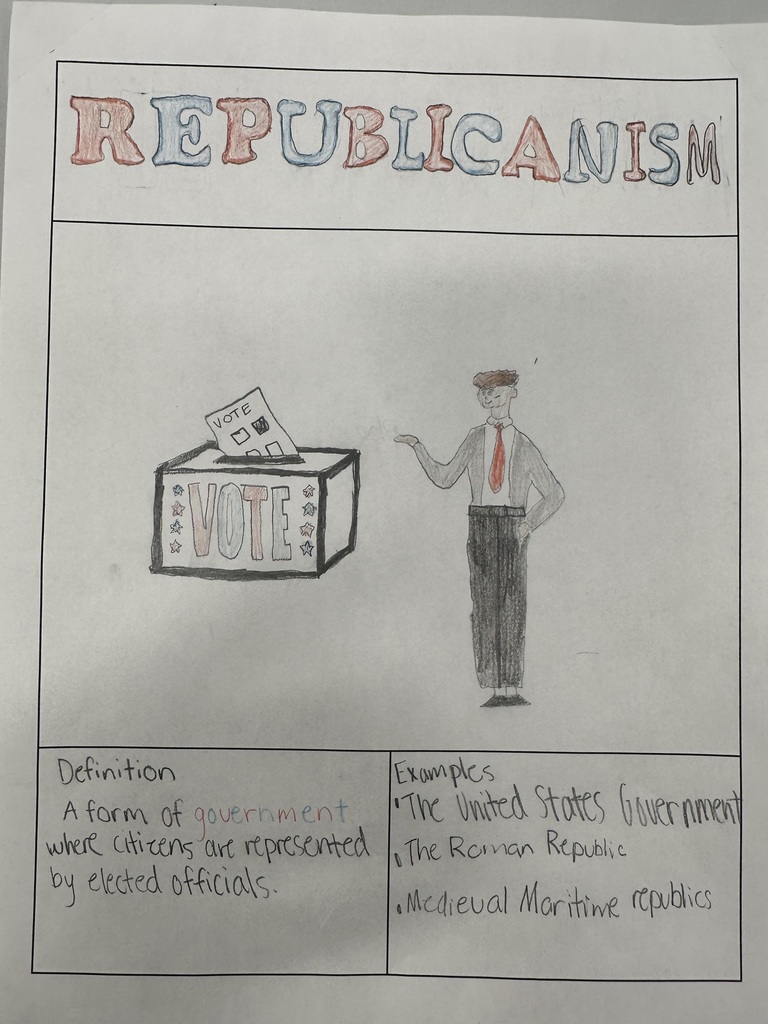 REPUBLICANISM
VOTE
VOTE
Definition
A form of government
where citizens are represented
by elected officials.
Examples
•The United States Government
•The Roman Republic
•Medieval Maritime republics